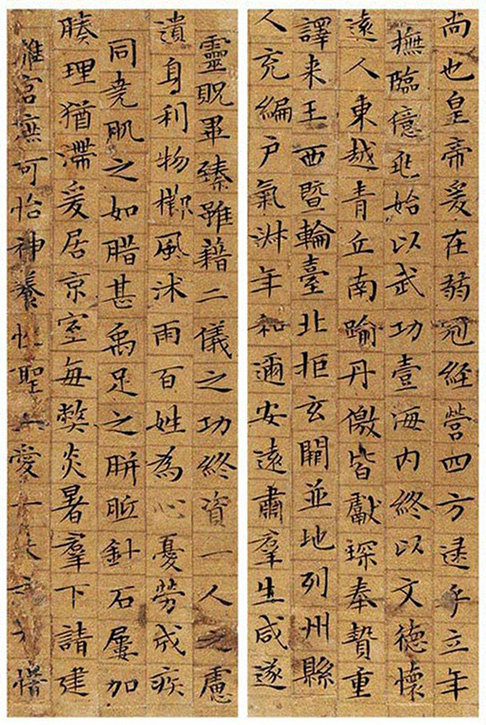 尚也皇帝爰在弱冠經營四方逮乎立年
撫臨億兆始以武功壹海内終以文德懷
遠人東越青丘南踰丹儌皆獻琛奉贄重
譯来王西暨輪臺北拒玄闕並地列州縣
人充編戶氣淋年和邇安遠肅羣生咸遂
靈貺畢臻雖藉二儀之功終資一人之慮
遺身利物櫛風沐雨百姓為心憂勞成疾
同堯肌之如腊甚禹足之胼胝針石屢加
腠理猶滯爰居京室每弊炎暑羣下請建
離宮庶可怡神養性聖上愛一夫之力惜